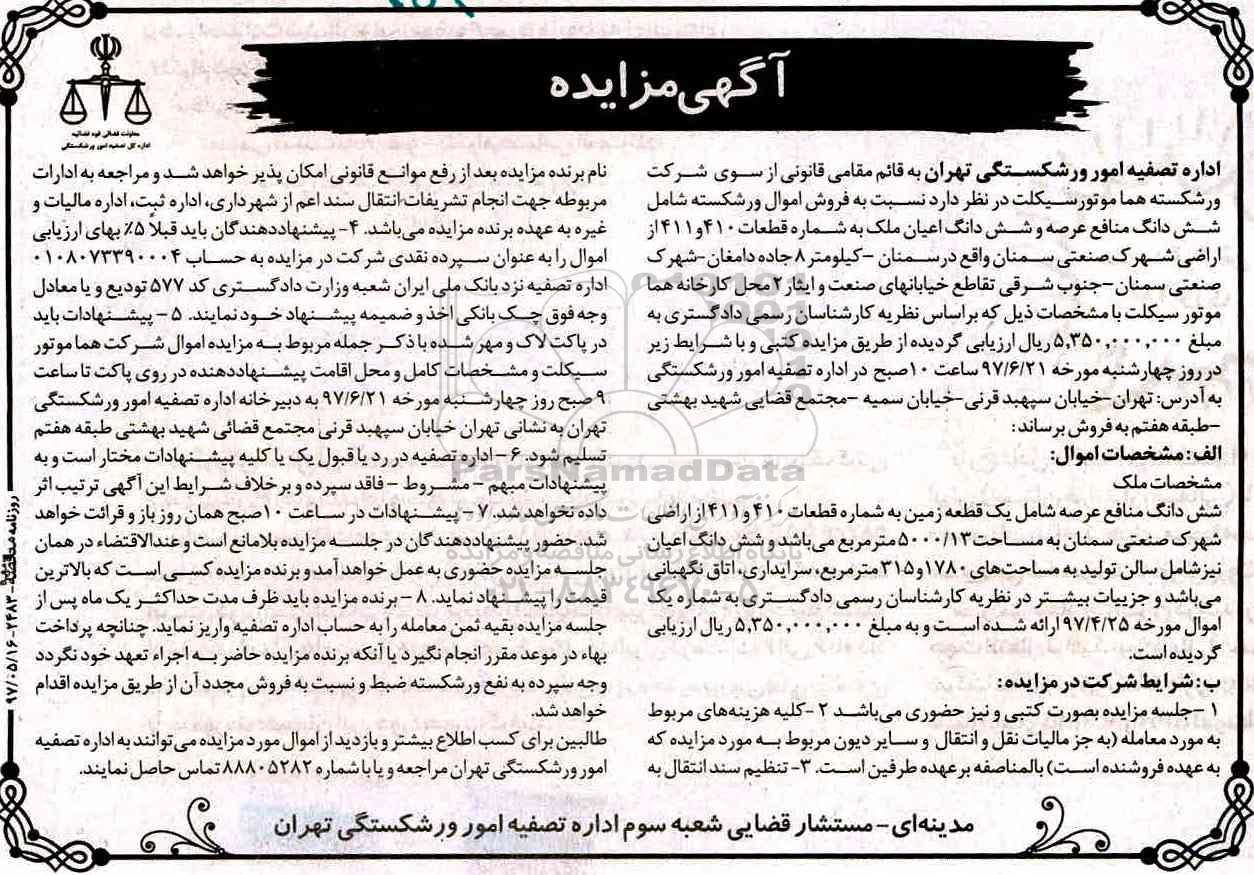 آگهی مزایده
معاونت قضائی قوه قضائیه
اداره کل تصفیه امور ورشکستگی
اداره تصفیه امور ورشکستگی تهران به قائم مقامی قانونی از سوی شرکت
ورشکسته هما موتورسیکلت در نظر دارد نسبت به فروش اموال ورشکسته شامل
شش دانگ منافع عرصه و شش دانگ اعیان ملک به شماره قطعات ۴۱۰و۴۱۱از
اراضی شهرک صنعتی سمنان واقع درسمنان –کیلومتر ۸ جاده دامغان-شهرک
صنعتی سمنان-جنوب شرقی تقاطع خیابانهای صنعت و ایثار ۲ محل کارخانه هما
موتور سیکلت با مشخصات ذیل که براساس نظریه کارشناسان رسمی دادگستری به
مبلغ ۵,۳۵۰,۰۰۰,۰۰۰ ریال ارزیابی گردیده از طریق مزایده کتبی و با شرایط زیر
در روز چهارشنبه مورخه ۹۷/۶/۲۱ ساعت ۱۰صبح در اداره تصفیه امور ورشکستگی
به آدرس: تهران-خیابان سپهبد قرنی-خیابان سمیه –مجتمع قضایی شهید بهشتی
–طبقه هفتم به فروش برساند:
الف: مشخصات اموال:
مشخصات ملک
شش دانگ منافع عرصه شامل یک قطعه زمین به شماره قطعات ۴۱۰و۴۱۱از اراضی
شهرک صنعتی سمنان به مساحت۵۰۰۰/۱۳ مترمربع می‌باشد و شش دانگ اعیان
نیزشامل سالن تولید به مساحت‌های ۱۷۸۰و۳۱۵ مترمربع، سرایداری، اتاق نگهبانی
می‌باشد و جزییات بیشتر در نظریه کارشناسان رسمی دادگستری به شماره یک
اموال مورخه ۹۷/۴/۲۵ ارائه شده است و به مبلغ ۵,۳۵۰,۰۰۰,۰۰۰ ریال ارزیابی
گردیده است.
ب: شرایط شرکت در مزایده:
۱ –جلسه مزایده بصورت کتبی و نیز حضوری می‌باشد ۲ -کلیه هزینه‌های مربوط
به مورد معامله (به جز مالیات نقل و انتقال و سایر دیون مربوط به مورد مزایده که
به عهده فروشنده است) بالمناصفه برعهده طرفین است. ۳- تنظیم سند انتقال به
نام برنده مزایده بعد از رفع موانع قانونی امکان پذیر خواهد شد و مراجعه به ادارات
مربوطه جهت انجام تشریفات انتقال سند اعم از شهرداری، اداره ثبت، اداره مالیات و
غیره به عهده برنده مزایده می‌باشد. ۴- پیشنهاددهندگان باید قبلاً ۵٪ بهای ارزیابی
اموال را به عنوان سپرده نقدی شرکت در مزایده به حساب ۰۱۰۸۰۷۳۳۹۰۰۰۴
اداره تصفیه نزد بانک ملی ایران شعبه وزارت دادگستری کد ۵۷۷ تودیع و یا معادل
وجه فوق چک بانکی اخذ و ضمیمه پیشنهاد خود نمایند. ۵ – پیشنهادات باید
در پاکت لاک و مهر شده با ذکر جمله مربوط به مزایده اموال شرکت هما موتور
سیکلت و مشخصات کامل و محل اقامت پیشنهاددهنده در روی پاکت تا ساعت
۹ صبح روز چهارشنبه مورخه ۹۷/۶/۲۱ به دبیرخانه اداره تصفیه امور ورشکستگی
تهران به نشانی تهران خیابان سپهبد قرنی مجتمع قضائی شهید بهشتی طبقه هفتم
تسلیم شود. ۶ – اداره تصفیه در رد یا قبول یک یا کلیه پیشنهادات مختار است و به
پیشنهادات مبهم – مشروط – فاقد سپرده و برخلاف شرایط این آگهی ترتیب اثر
داده نخواهد شد. ۷ – پیشنهادات در ساعت ۱۰صبح همان روز باز و قرائت خواهد
شد. حضور پیشنهاددهندگان در جلسه مزایده بلامانع است و عندالاقتضاء در همان
جلسه مزایده حضوری به عمل خواهد آمد و برنده مزایده کسی است که بالاترین
قیمت را پیشنهاد نماید. ۸ – برنده مزایده باید ظرف مدت حداکثر یک ماه پس از
جلسه مزایده بقیه ثمن معامله را به حساب اداره تصفیه واریز نماید. چنانچه پرداخت
بهاء در موعد مقرر انجام نگیرد یا آنکه برنده مزایده حاضر به اجراء تعهد خود نگردد
وجه سپرده به نفع ورشکسته ضبط و نسبت به فروش مجدد آن از طریق مزایده اقدام
خواهد شد.
طالبین برای کسب اطلاع بیشتر و بازدید از اموال مورد مزایده می‌توانند به اداره تصفیه
امور ورشکستگی تهران مراجعه و یا با شماره ۸۸۸۰۵۲۸۲ تماس حاصل نمایند.
مدینه‌ای- مستشار قضایی شعبه سوم اداره تصفیه امور ورشکستگی تهران
ParsNamadData
پایگاه اطلاع رسانی مناقصه مزایده
۰۲۱-۸۸۳۴۹۶۷۰-۵